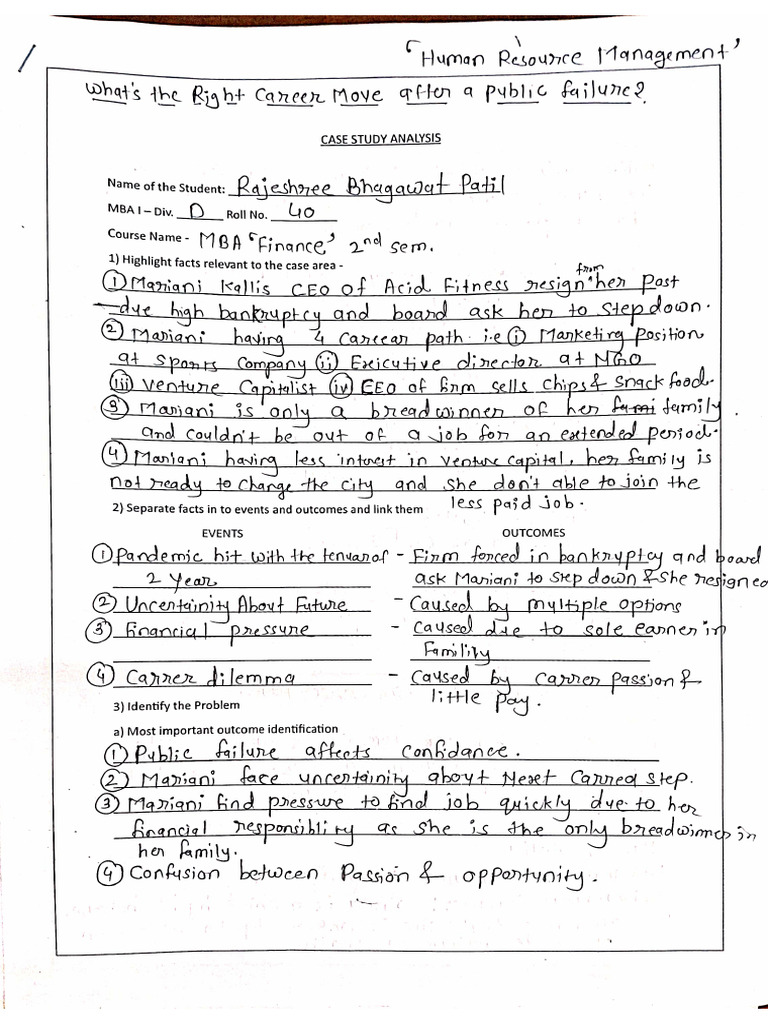 'Human Resource Management'
What's the Right Career Move after a public failure?
CASE STUDY ANALYSIS
Name of the Student: Rajeshree Bhagawat Patil
MBA I – Div. D Roll No. 40
Course Name - MBA 'Finance' 2nd sem.
1) Highlight facts relevant to the case area -
① Mariani Kallis CEO of Acid Fitness resign from her Post
due high bankruptcy and board ask her to step down.
② Mariani having 4 carrear path i.e ⓘ Marketing Position
at Sports Company ⓘⓘ Exicutive director at NGO
ⓘⓘⓘ Venture Capitalist ⓘⓥ EEO of firm sells chips & snack food.
③ Mariani is only a breadwinner of her fami family
and couldn't be out of a job for an extended period.
④ Mariani having less interest in venture capital, her family is
not ready to change the city and she don't able to join the
less paid job.
2) Separate facts in to events and outcomes and link them
EVENTS OUTCOMES
① Pandemic hit with the tenuar of - Firm forced in bankruptcy and board
2 Year ask Mariani to step down & she resigned
② Uncertainity About Future - Caused by multiple options
③ Financial pressure - Caused due to sole earner in
Famility
④ Carrer dilemma - Caused by carrer passion &
little pay.
3) Identify the Problem
a) Most important outcome identification
① Public failure affects confidance.
② Mariani face uncertainity about Nexet Carrea step.
③ Mariani find pressure to find job quickly due to her
financial responsiblity as she is the only breadwinner in
her family.
④ Confusion between Passion & opportunity.